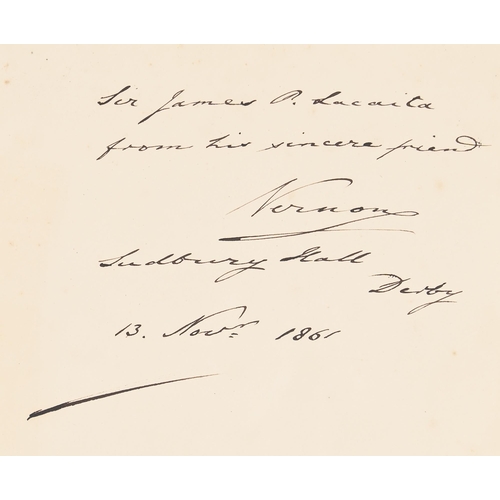 Sir James P. Lacaita
from his sincere friend
Vernon
Sudbury Hall
Derby
13. Novr. 1861